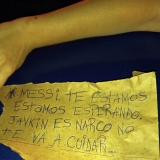 MESSI. TE ESTAMOS
ESTAMOS ESPERANDO.
JAVKIN ES NARCO NO
TE VA A CUIDAR...